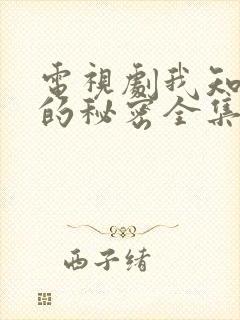 電視劇我知
的秘密全集
西子绪